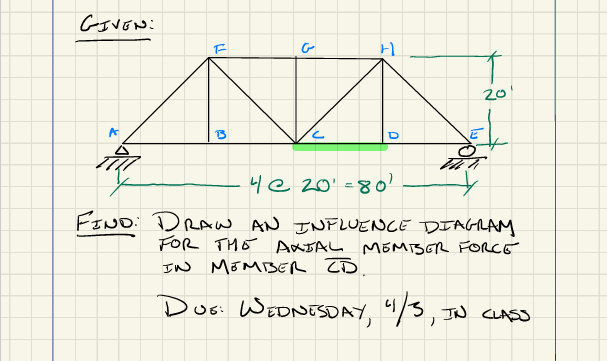 GIVEN:
F G H
20'
A B C D E
4 @ 20' = 80'
FIND: DRAW AN INFLUENCE DIAGRAM
FOR THE AXIAL MEMBER FORCE
IN MEMBER CD.
DUE: WEDNESDAY, 4/3, IN CLASS